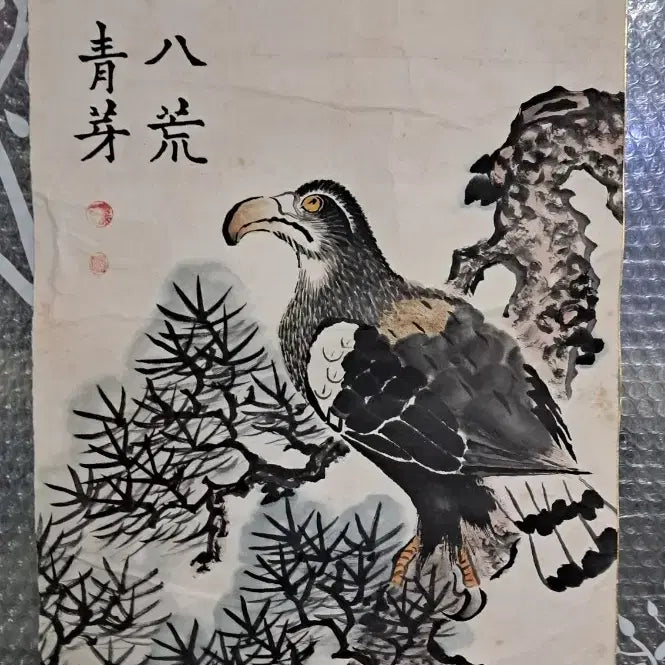 八荒
青芽